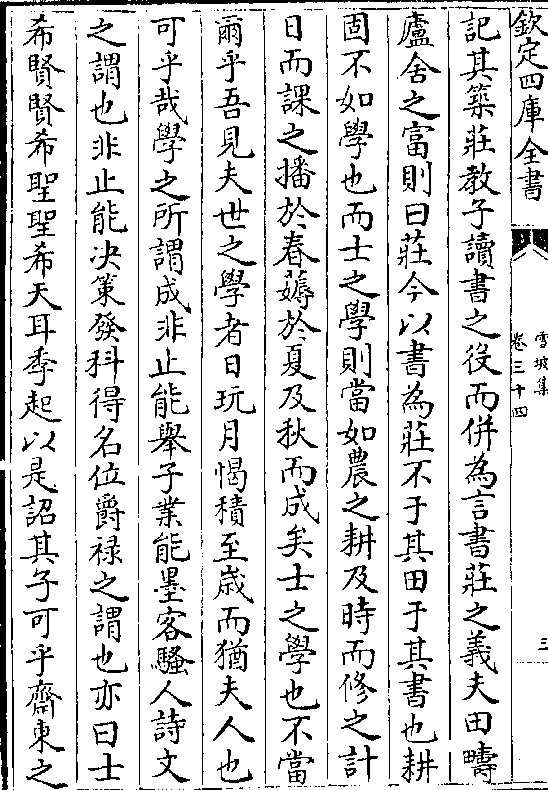 欽定四庫全書
雪坡集
卷三十四
三
記其築莊教子讀書之役而併為言書莊之義夫田疇
廬舍之富則曰莊今以書為莊不于其田于其書也耕
固不如學也而士之學則當如農之耕及時而修之計
日而課之播於春薅於夏及秋而成矣士之學也不當
爾乎吾見夫世之學者日玩月愒積至歲而猶夫人也
可乎哉學之所謂成非止能舉子業能墨客騷人詩文
之謂也非止能决策發科得名位爵禄之謂也亦曰士
希賢賢希聖聖希天耳季起以是詔其子可乎齋東之